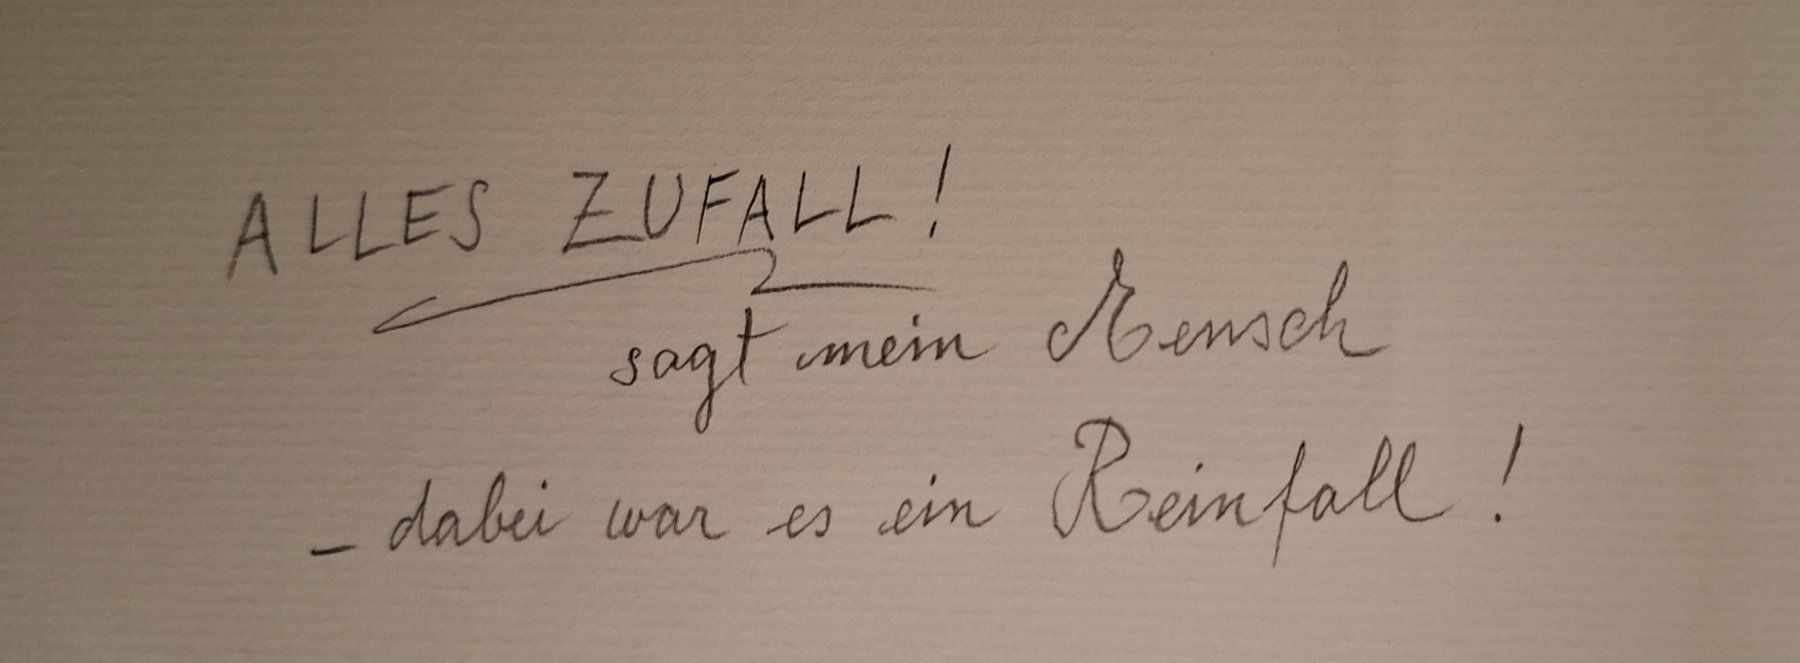 ALLES ZUFALL!
sagt mein Mensch
– dabei war es ein Reinfall!